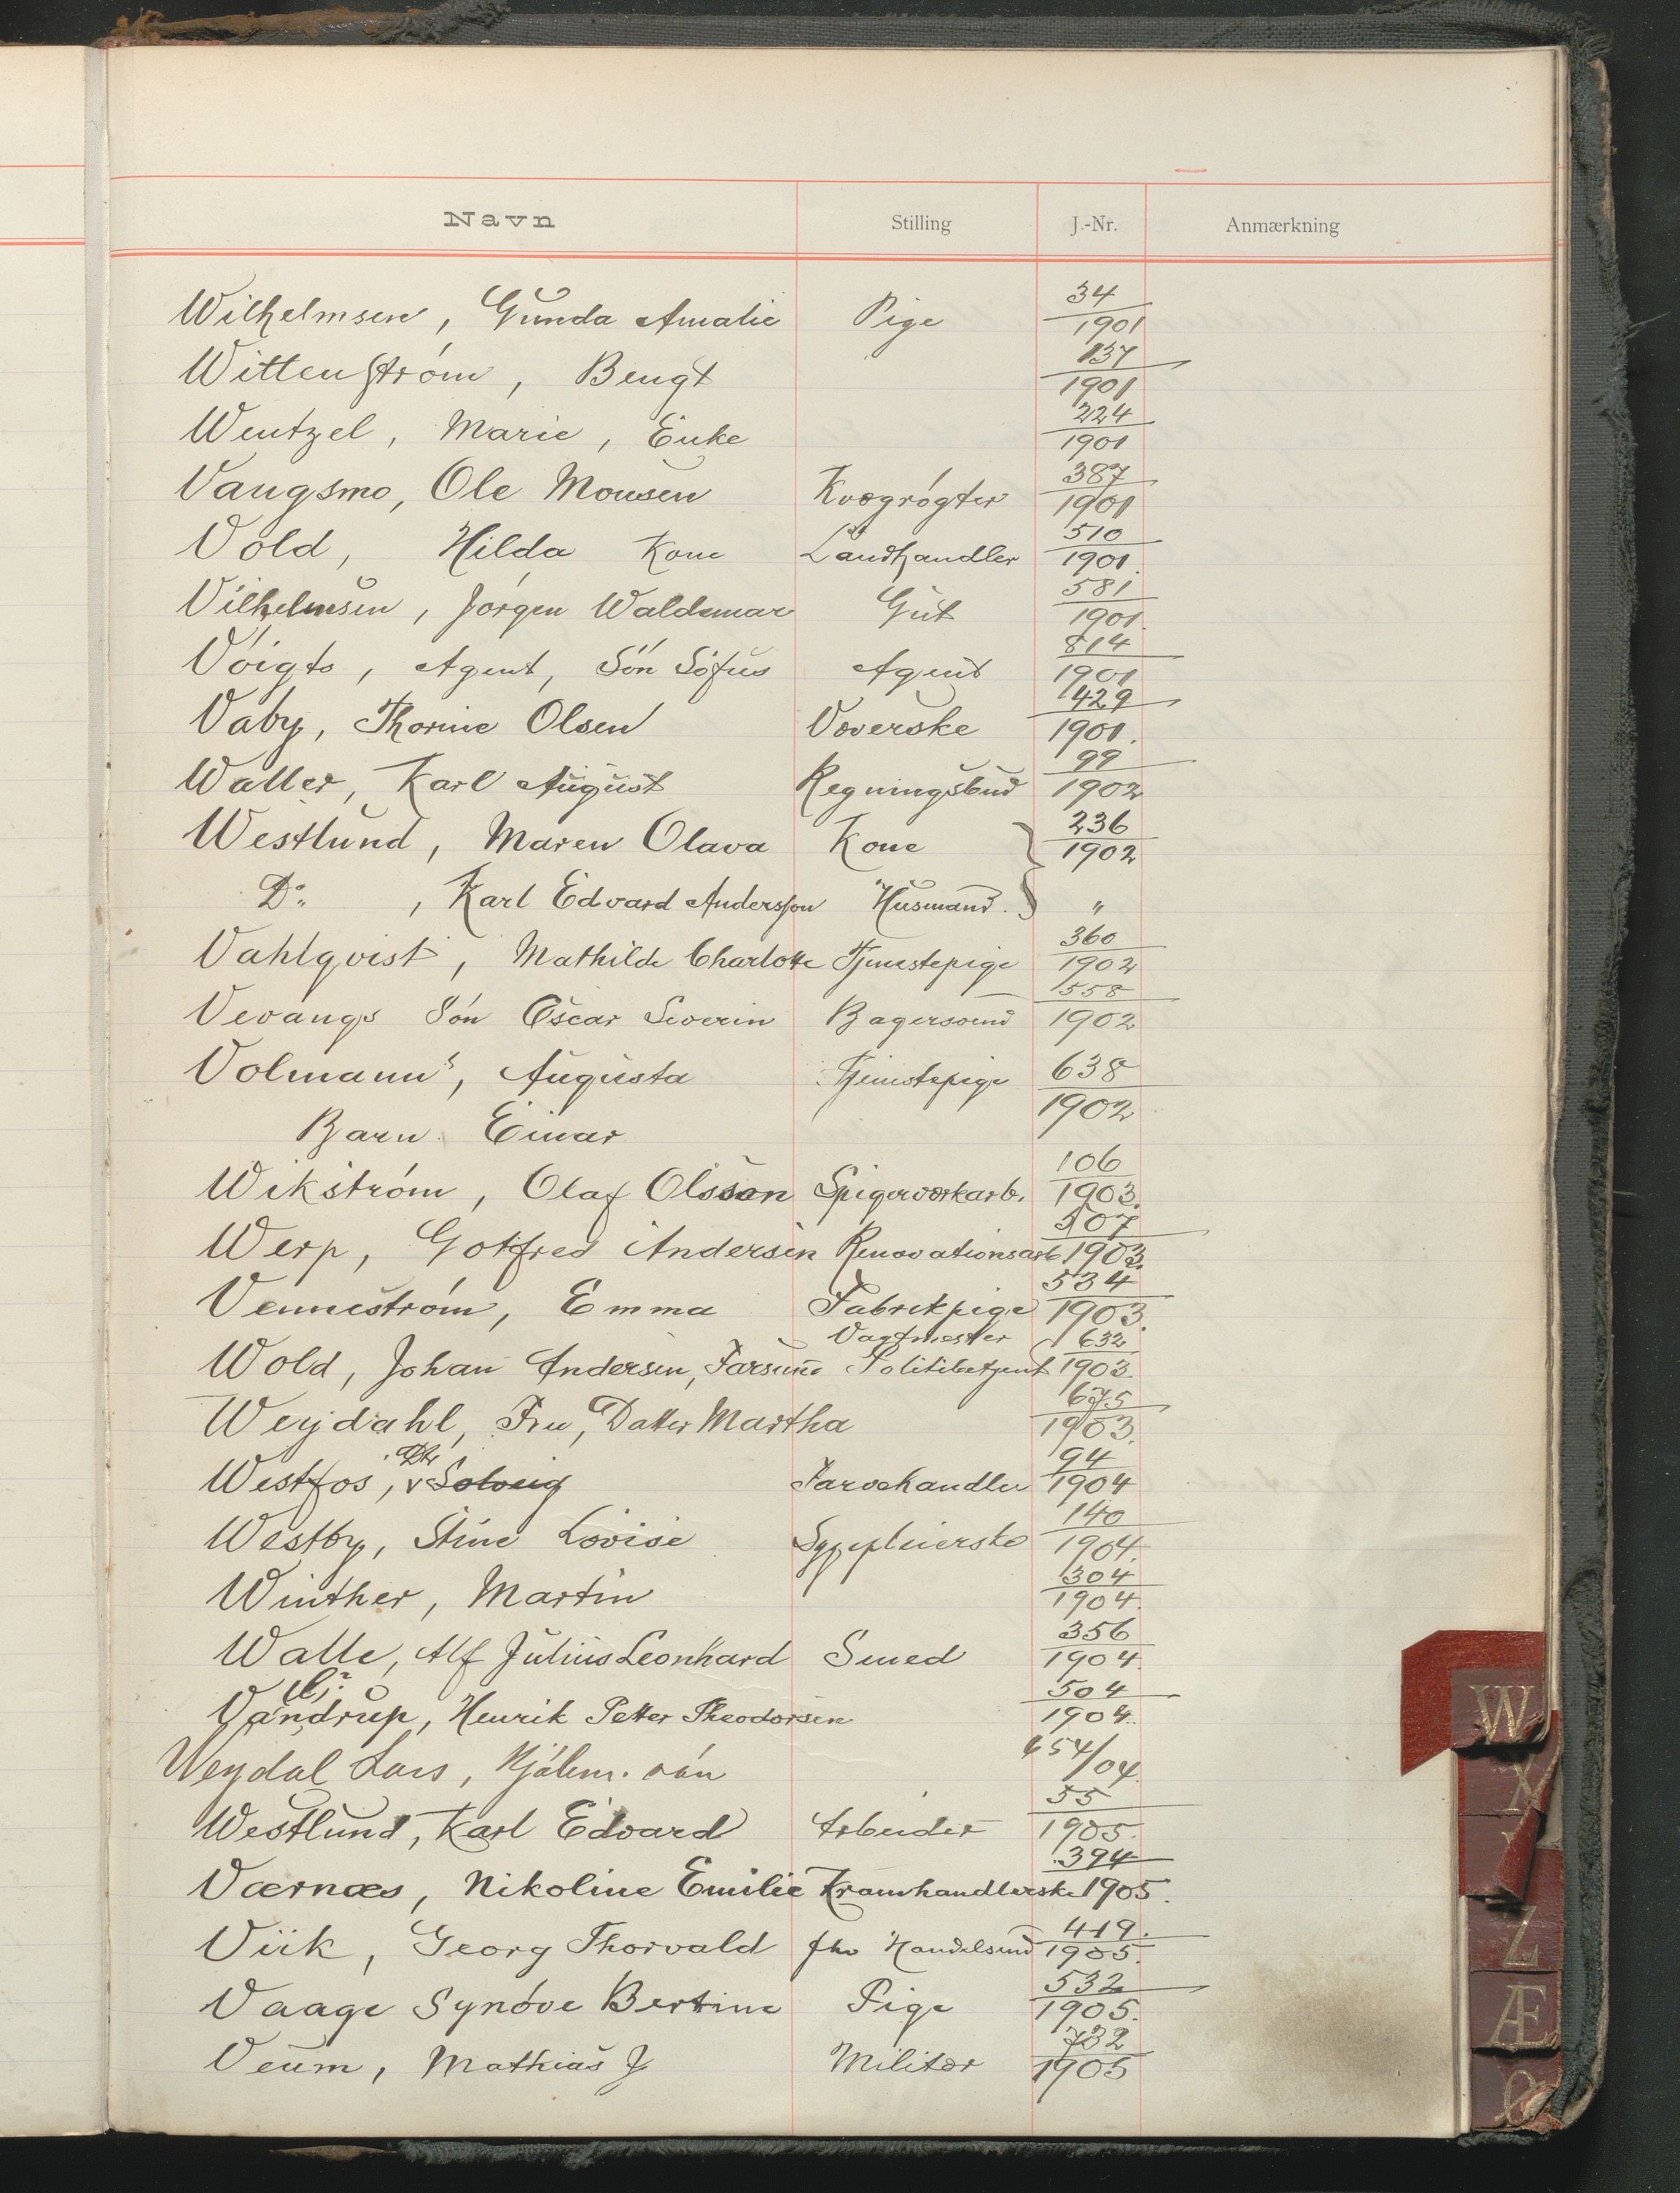 Navn Stilling J.-Nr. Anmærkning
Wilhelmsen, Gunda Amalie Pige 34/1901
Wittenström, Bengt 137/1901
Wentzel, Marie, Enke 224/1901
Vaugsmo, Ole Monsen Kvægrögter 387/1901
Vold, Hilda Kone Landhandler 510/1901.
Vilhelmsen, Jörgen Waldemar Gut 581/1901.
Voigts, Agent, Sön Sofus Agent 814/1901
Vaby, Thorine Olsen Væverske 429/1901.
Waller, Karl August Regningsbud 99/1902
Westlund, Maren Olava Kone } 236/1902
Do. , Karl Edvard Andersson Husmand. } "
Vahlqvist, Mathilde Charlotte Tjenestepige 360/1902
Vevangs Sön Oscar Severin Bagersvend 558/1902
Volmann's, Augusta Tjenestepige 638/1902
Barn Einar
Wikström, Olaf Olsson Spigerværkarb. 106/1903.
Werp, Gotfred Andersen Renovationsarb 507/1903.
Venneström, Emma Fabrikpige 534/1903.
Vagtmester
Wold, Johan Andersen, Farsund Politibetjent 632/1903.
Weydahl, Fru, Datter Martha 675/1903.
Westfos, Solveig Farvehandler 94/1904
Westby, Stine Lovise Sygepleierske 140/1904.
Winther, Martin 304/1904.
Walle, Alf Julius Leonhard Smed 356/1904.
Vandrup, Henrik Petter Theodorsen 504/1904.
Weydal Lars, Hjalm. sön 654/04
Westlund, Karl Edvard Arbeider 55/1905.
Værnæs, Nikoline Emilie Kramhandlerske 394/1905.
Viik, Georg Thorvald fhv Handelsmd 419./1905.
Vaage Synöve Bertine Pige 532/1905.
Veum, Mathias J Militær 732/1905
W
X
Z
Æ
Ø